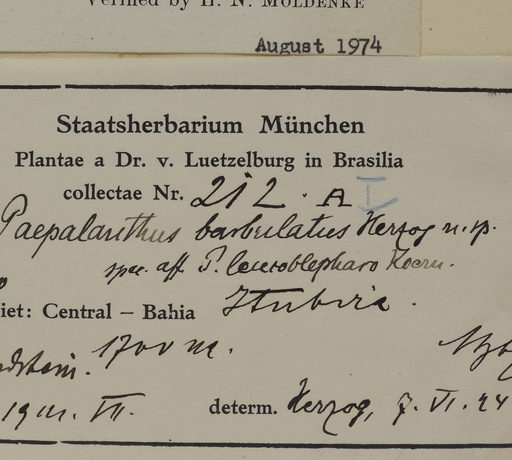 Verified by H. N. MOLDENKE
August 1974
Staatsherbarium München
Plantae a Dr. v. Luetzelburg in Brasilia
collectae Nr. 212. A I
Paepalanthus barbulatus Herzog n. sp.
spec. aff. P. leucoblepharo Koern.
iet: Central – Bahia Itubira.
1700 m.
determ. Herzog, 7. VI. 24